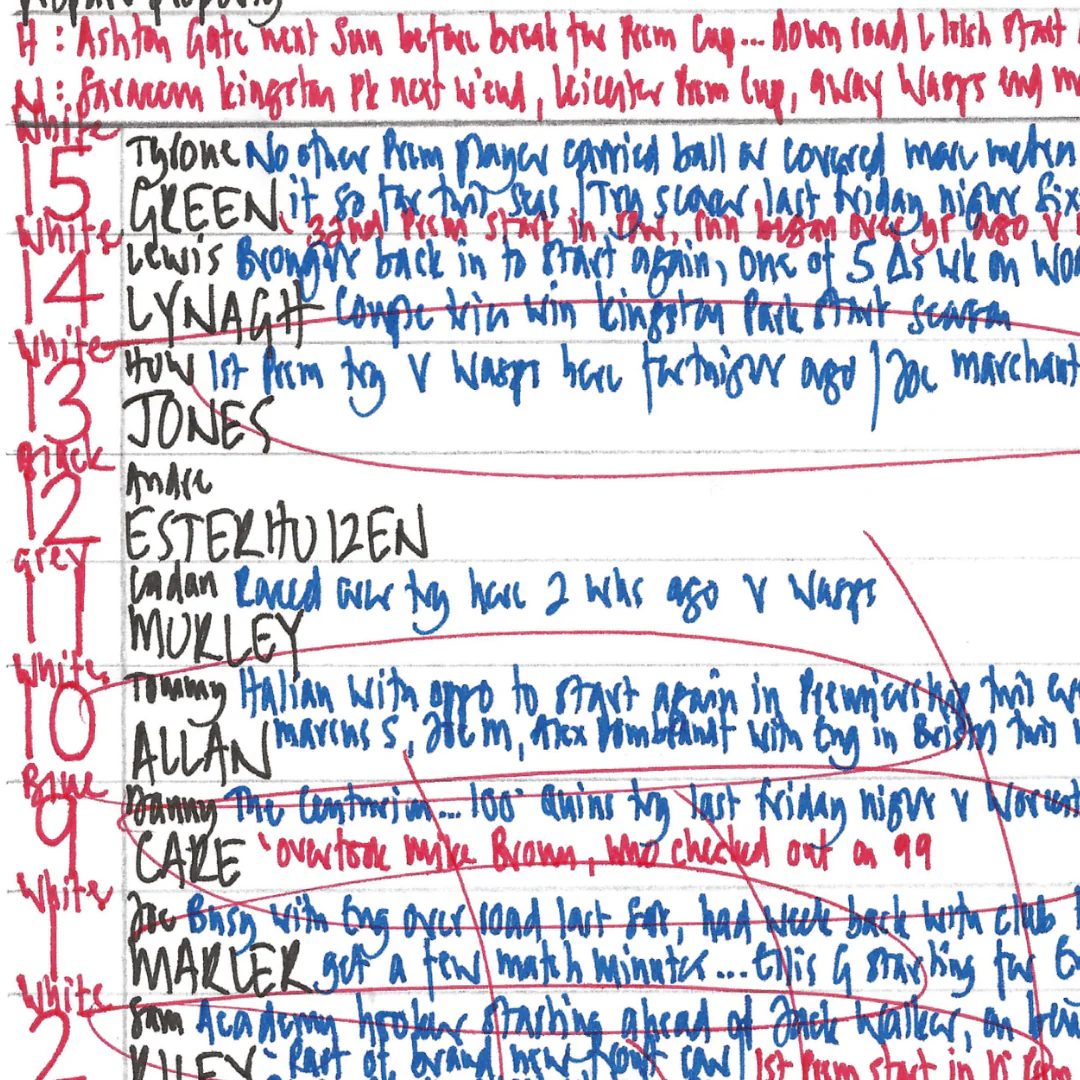 H : Ashton Gate next Sun before break for Prem Cup... down road L Irish start
N : Saracens Kingston Pk next w'end, Leicester Prem Cup, away Wasps end
White
15 Tyrone No other Prem player carried ball or covered more metres
GREEN it so far this seas / Try scorer last Friday night
White 32nd Prem start in row, run began over yr ago v
14 Lewis Brought back in to start again, one of 5 Δs wk on
LYNAGH Couple tries win Kingston Park start season
White
13 Huw 1st Prem try v Wasps here fortnight ago / Joe Marchant
JONES
Black
12 Andre
ESTERHUIZEN
Grey
11 Cadan Raced over try here 2 wks ago v Wasps
MURLEY
White
10 Tommy Italian with oppo to start again in Premiership this
ALLAN Marcus S, Joe M, Alex Dombrandt with Eng in this
Blue
9 Danny The Centurion... 100th Quins try last Friday night v
CARE overtook Mike Brown, who checked out on 99
White
1 Joe Busy with Eng over road last Sat, had week back with club
MARLER get a few match minutes... Ellis G starting for
White
2 Sam Academy hooker starting ahead of Jack Walker, on
RILEY Part of brand new front row / 1st Prem start in